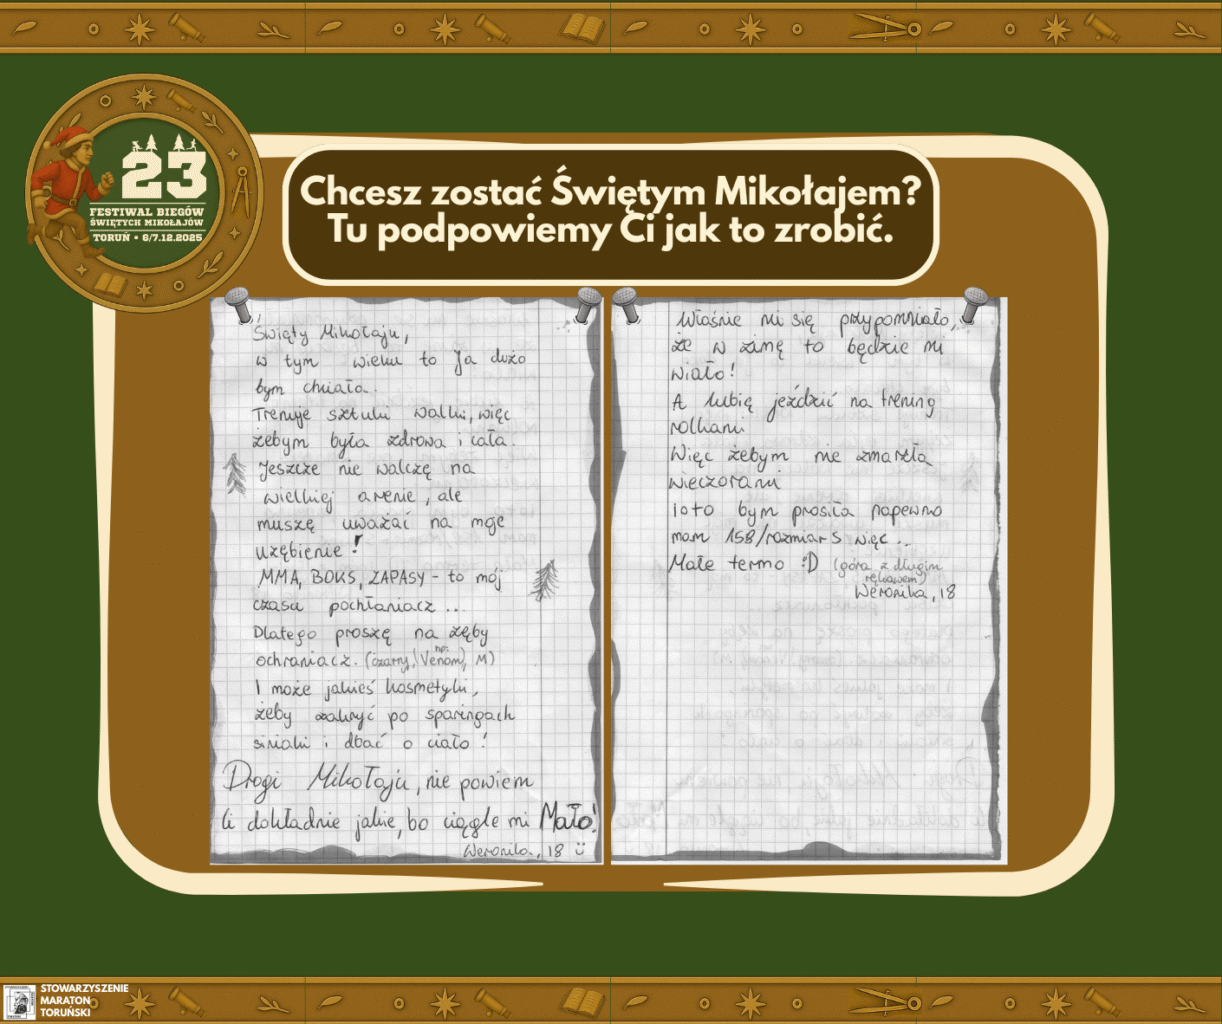 23
FESTIWAL BIEGÓW
ŚWIĘTYCH MIKOŁAJÓW
TORUŃ • 6/7.12.2025
Chcesz zostać Świętym Mikołajem?
Tu podpowiemy Ci jak to zrobić.
Święty Mikołaju,
w tym wieku to Ja dużo
bym chciała.
Trenuje sztuki walki, więc
żebym była zdrowa i cała.
Jeszcze nie walczę na
wielkiej arenie, ale
muszę uważać na moje
uzębienie!
MMA, BOKS, ZAPASY - to mój
czasu pochłaniacz...
Dlatego proszę na zęby
ochraniacz. (czarny, (np. Venom), M)
I może jakieś kosmetyki,
żeby zakryć po sparingach
siniaki i dbać o ciało!
Drogi Mikołaju, nie powiem
Ci dokładnie jakie, bo ciągle mi Mało!
Weronika, 18
Właśnie mi się przypomniało,
że w zimę to będzie mi
wiało!
A lubię jeździć na trening
rolkami
Więc żebym nie zmarzła
wieczorami
i o to bym prosiła napewno
mam 158/rozmiar S więc...
Małe termo :D (góra z długim
rękawem)
Weronika, 18
STOWARZYSZENIE
MARATON
TORUŃSKI